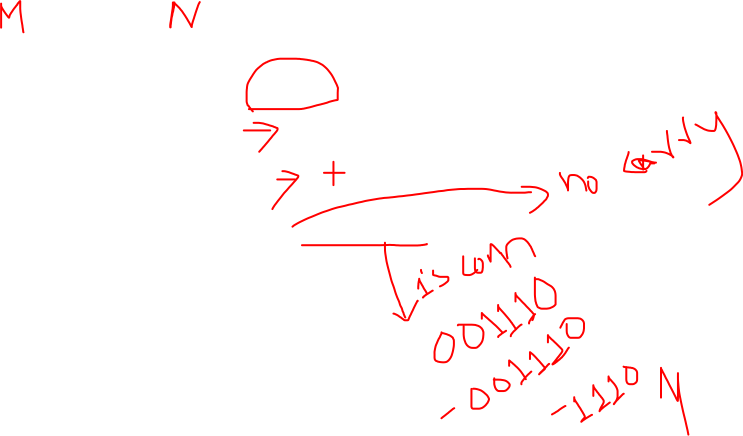 M N
+
no carry
1's com
001110
-001110
-1110 N